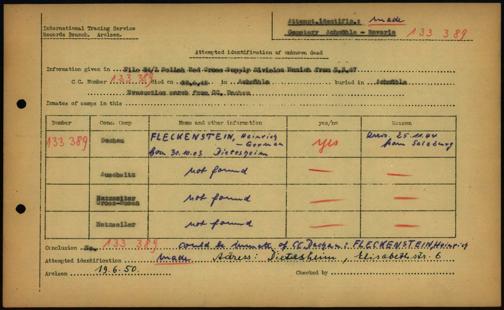 International Tracing Service
Records Branch, Arolsen.
Attempt.identific.: made
Cemetery Achmühle - Bavaria
133 389
Attempted identification of unknown dead
Information given in File 24/I Polish Red Cross Supply Division Munich from 8.8.47
C.C. Number 133 389 died on in Achmühle buried in Achmühle
Evacuation march from CC. Dachau
Inmates of camps in this
Number Conc. Camp Name and other information yes/no Reason
133 389 Dachau FLECKENSTEIN, Heinrich - German born 30.10.03 Dietesheim yes 25.11.44 from Salzburg
Auschwitz not found
Natzweiler Gross-Rosen not found
Natzweiler not found
Conclusion No. 133 389 could be inmate of CC Dachau: FLECKENSTEIN, Heinrich
Attempted identification made Adress: Dietesheim, Elisabethstr. 6
Arolsen 19.6.50. Checked by